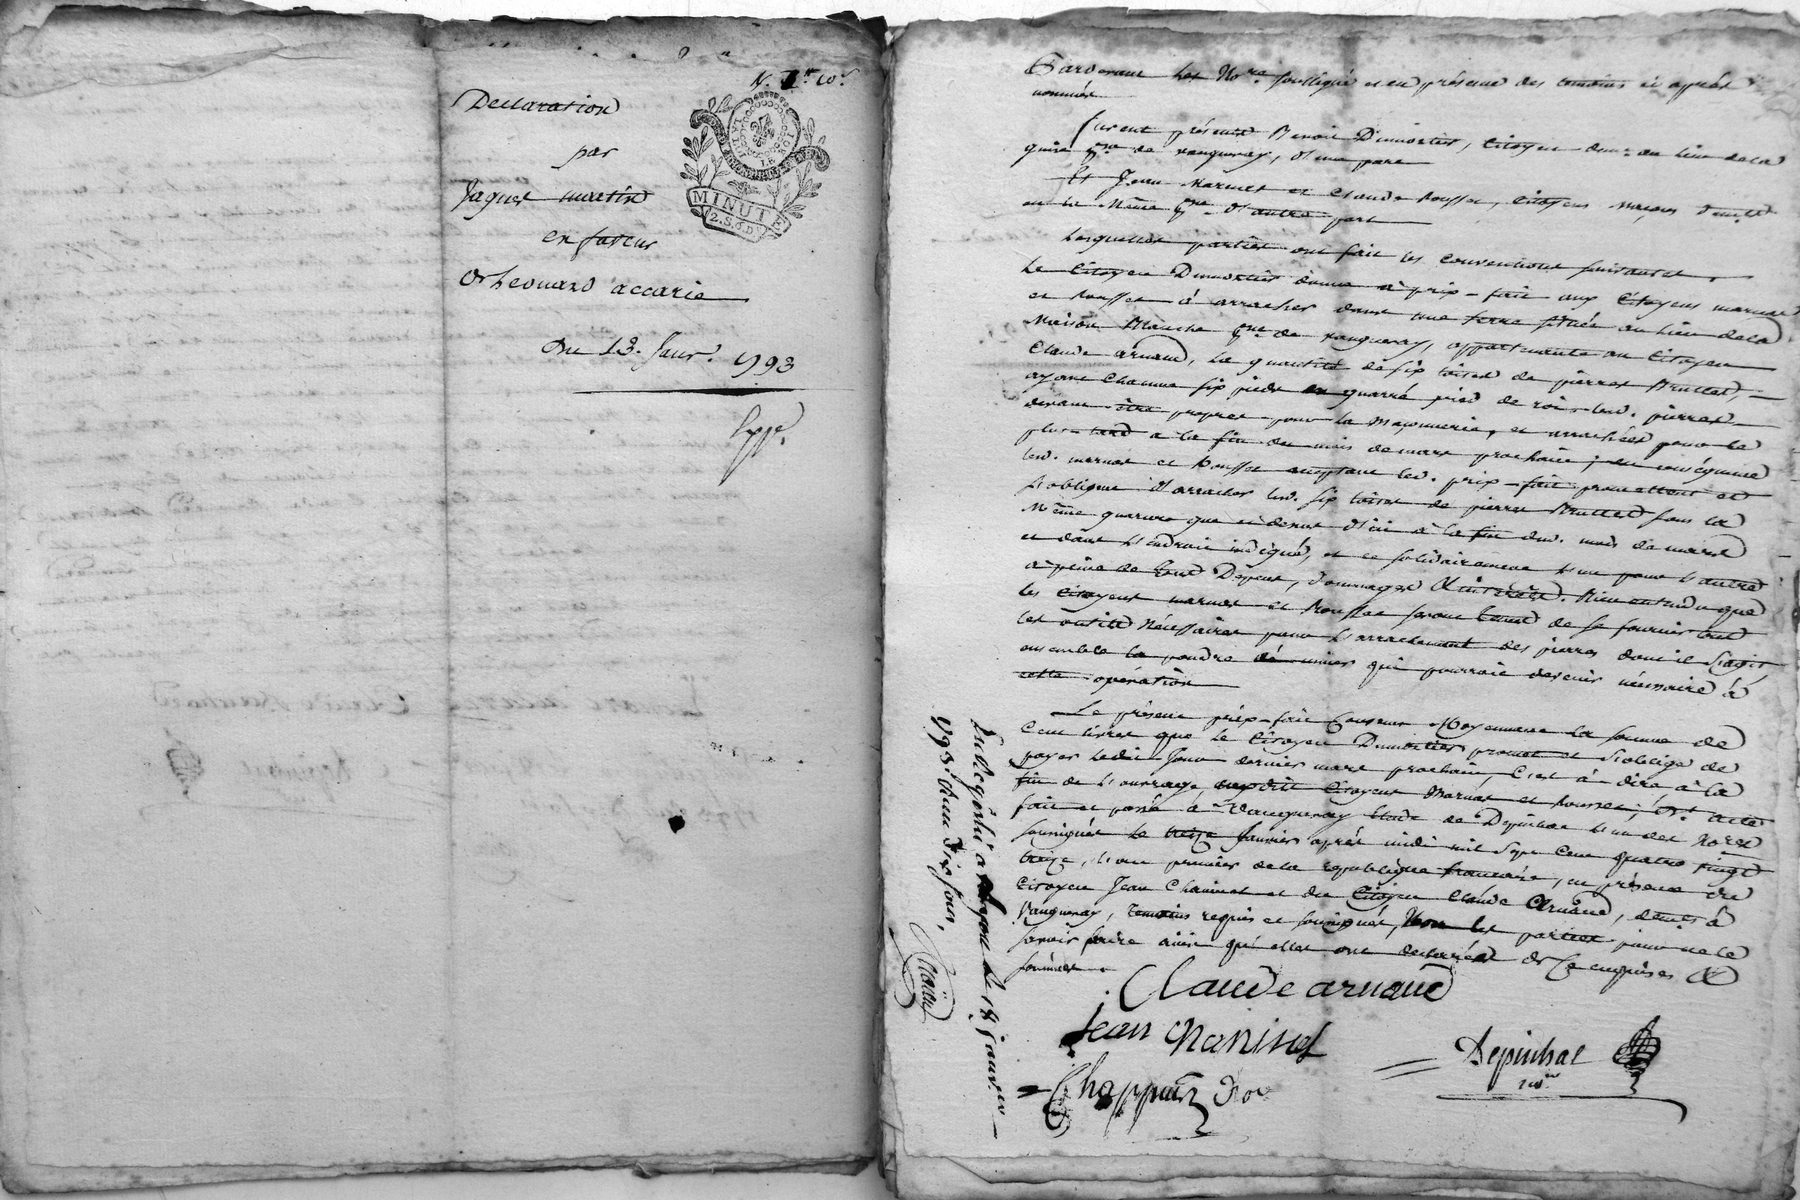 Declaration
par
Jaques martin
en faveur
Leonard accarie
Du 13. Janv. 1793
LA LOI LE ROI
MINUTE
2.S.6.D
Pardevant les No.res soussignés et en présence des temoins ci après
nommés
furent présents Benoit Dumortier, Citoyen dem.t au lieu de la
p.sse de vaugneray, d'une part
Et Jean Marnet et Claude Rousset, Citoyens maçons
en la Même p.sse d'autre part
Lesquelles parties ont fait les conventions suivantes
Le Citoyen Dumortier donne à prix-fait aux Citoyens marnet
et Rousset à arracher dans une terre située au lieu de la
Maison Blanche p.sse de vaugneray, appartenante au Citoyen
Claude arnaud, la quantité de six toises de pierres Bruttes,
ayant chacune six pieds en quarré pied de roi, lesd. pierres
devant être propres pour la maçonnerie, et arrachées pour le
plus tard a la fin du mois de mars prochain; en conséquence
lesd. marnet et Rousset acceptant led. prix-fait promettent et
s'obligent d'arracher lesd. six toises de pierres Bruttes sous la
Même quarrure que ci dessus d'ici à la fin dud. mois de mars
et dans l'endroit indiqué, et ce solidairement l'un pour l'autre
a peine de tous Depens, dommages & interêts. Bien entendu que
les Citoyens marnet et Rousset seront tenus de se fournir tous
les outils Nécessaires pour l'arrachement des pierres dont il s'agit,
ensemble la poudre à miner qui pourroit devenir nécessaire à
cette opération
Le présent prix-fait Convenu Moyennant la somme de
Cent livres que le Citoyen Dumortier promet et s'oblige de
payer ledit Jour dernier mars prochain, C'est à dire à la
fin de l'ouvrage, auxdits Citoyens Marnet et Rousset;
fait et passé à Vaugneray Etude de Depinhac l'un des No.res
soussignés le treize Janvier après midi mil sept Cent quatre vingt
treize, l'an premier de la republique francaise, en présence du
Citoyen Jean Chaninet et du Citoyen Claude Arnaud, dem.ts à
Vaugneray, temoins requis et soussignés, Non les parties pour ne le
savoir faire ainsi qu'elles ont declaré de Ce enquises &
sommées.
Claude arnaud
Jean Chaninet
Depinhac
no.re
Chappuis
Enregistré a le 18 janvier
1793